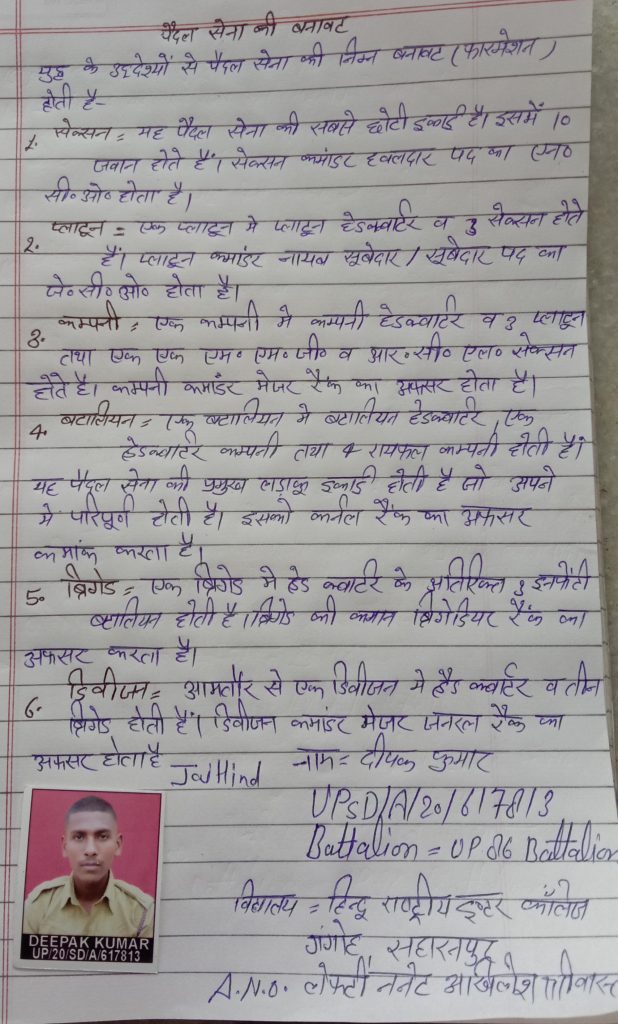 पैदल सेना की बनावट
युद्ध के उद्देश्यों से पैदल सेना की निम्न बनावट (फारमेशन)
होती है-
1. सेक्सन = यह पैदल सेना की सबसे छोटी इकाई है। इसमें 10
जवान होते हैं। सेक्सन कमांडर हवलदार पद का एन०
सी० ओ० होता है।
2. प्लाटून = एक प्लाटून मे प्लाटून हेडक्वार्टर व 3 सेक्सन होते
हैं। प्लाटून कमांडर नायब सूबेदार / सूबेदार पद का
जे० सी० ओ० होता है।
3. कम्पनी = एक कम्पनी मे कम्पनी हेडक्वार्टर व 3 प्लाटून
तथा एक एक एम० एम० जी० व आर० सी० एल० सेक्सन
होते है। कम्पनी कमांडर मेजर रैंक का अफसर होता है।
4. बटालियन = एक बटालियन मे बटालियन हेडक्वार्टर, एक
हेडक्वार्टर कम्पनी तथा 4 रायफल कम्पनी होती हैं।
यह पैदल सेना की प्रमुख लड़ाकू इकाई होती है जो अपने
मे परिपूर्ण होती है। इसको कर्नल रैंक का अफसर
कमांक करता है।
5. ब्रिगेड = एक ब्रिगेड मे हेड क्वार्टर के अतिरिक्त 3 इनफेंटी
बटालियन होती है। ब्रिगेड की कमान ब्रिगेडियर रैंक का
अफसर करता है।
6. डिवीजन = आमतौर से एक डिवीजन मे हैड क्वार्टर व तीन
ब्रिगेड होती हैं। डिवीजन कमांडर मेजर जनरल रैंक का
अफसर होता है
Jai Hind
नाम = दीपक कुमार
UPSD/A/20/617813
Battalion = UP 86 Battalion
विद्यालय = हिन्दू राष्ट्रीय इण्टर कॉलेज
गंगोह सहारनपुर
A.N.O. लेफ्टी ननेट अखिलेश
DEEPAK KUMAR
UP/20/SD/A/617813